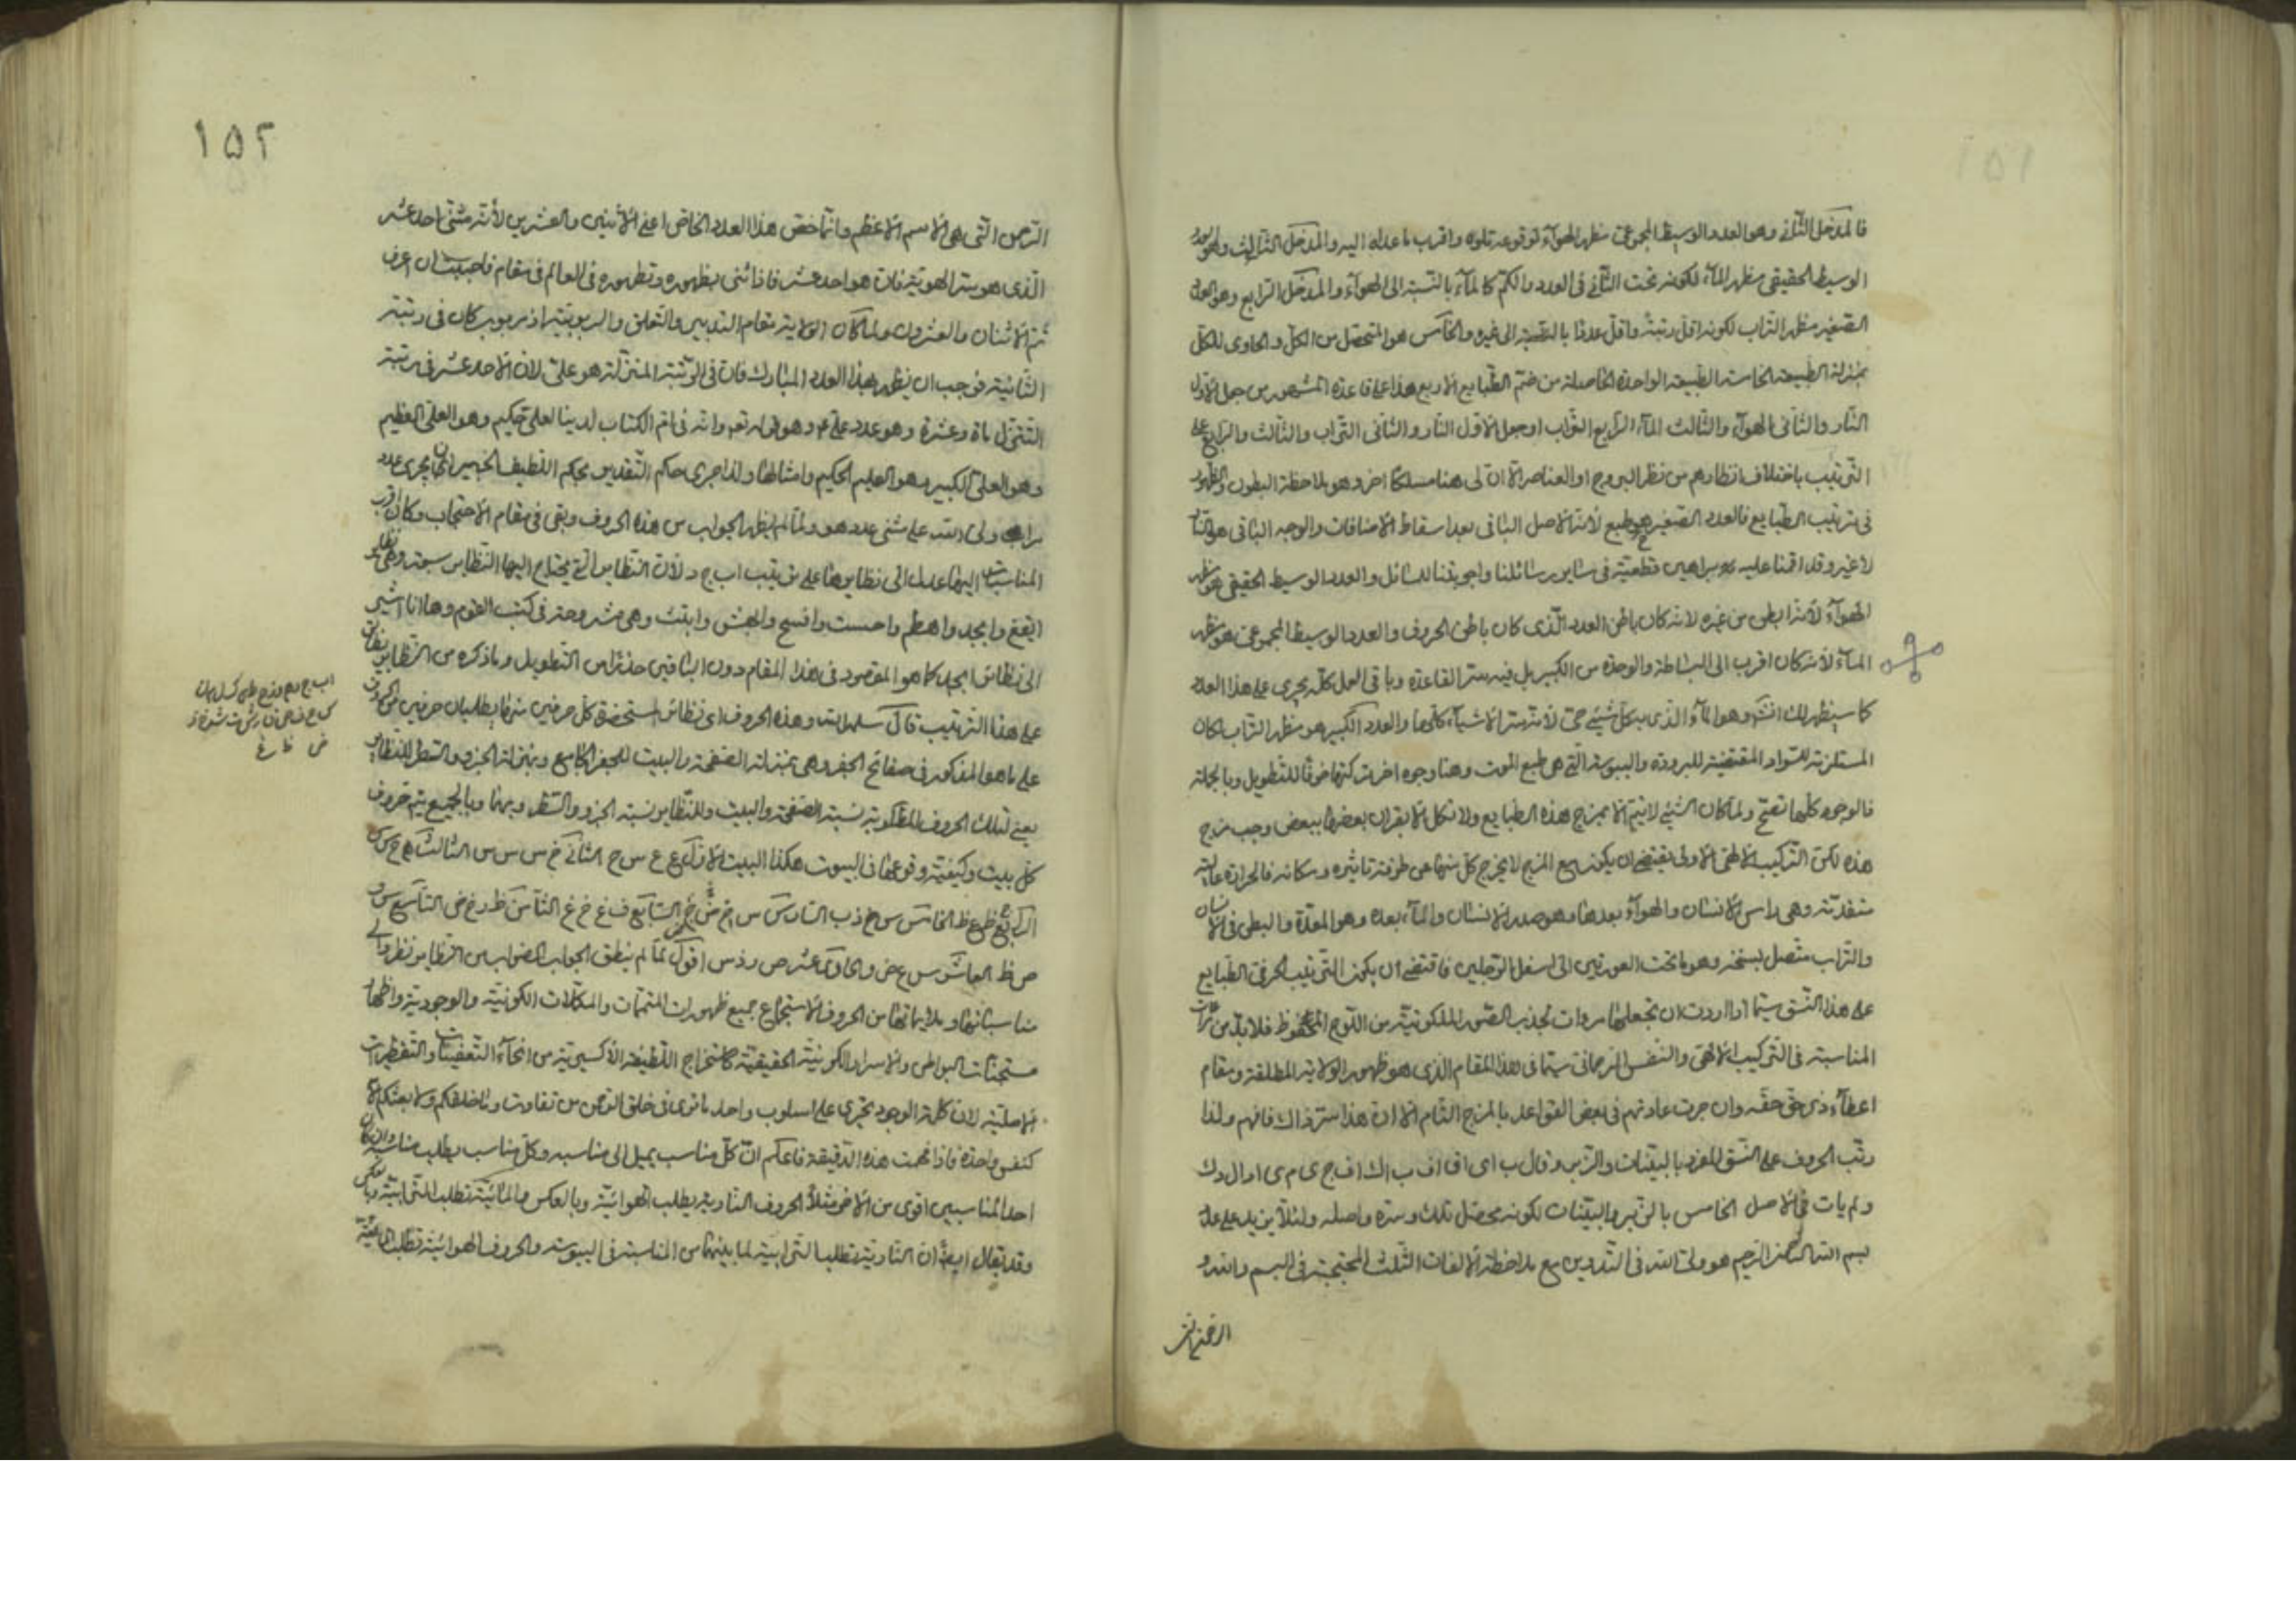 ١٥١
فالمدخل الثاني وهو العدد الوسيط المجموعي مظهر الهوآء لوقوعه تلوه واقرب ما عداه اليه والمدخل الثالث وهو العدد
الوسيط الحقيقي مظهر المآء لكونه تحت الثاني في العدد والكم كالمآء بالنسبة الى الهوآء والمدخل الرابع وهو العدد
الصغير مظهر التراب لكونه اقل رتبة واقل عددا بالنسبة الى غيره والخامس هو المتحصل من الكل والحاوى للكل
بمنزلة الطبيعة الخامسة الطبيعة الواحدة الحاصلة من ضم الطبايع الاربع هذا على قاعدة المشهور من جعل الاول
النار والثاني الهوآء والثالث المآء الرابع التراب او جعل الاول النار والثاني التراب والثالث والرابع على
الترتيب باختلاف انظارهم من نظر البروج او العناصر الا ان لى هنا مسلكا اخر وهو ملاحظة البطون والظهور
في ترتيب الطبايع فالعدد الصغير هو طبع لانه الاصل الباقي بعد اسقاط الاضافات والوجه الباقي هو النار
لا غير وقد اقمنا عليه براهين قطعية في ساير رسائلنا واجوبتنا للسائل والعدد الوسيط الحقيقي هو مظهر
الهوآء لانه ابطن من غيره لانه كان باطن العدد الذى كان باطن الحروف والعدد الوسيط المجموعي هو مظهر
المآء لانه كان اقرب الى البساطة والوحدة من الكبير بل فيه سر القاعدة وباقي العمل كله يجرى على هذا العدد
كما سيظهر لك انش وهو المآء الذى به كل شيئ حي لانه سر الاشيآء كلها والعدد الكبير هو مظهر التراب لمكان
المستلزمة للسواد المقتضية للبرودة واليبوسة التي هي طبع الموت وهنا وجوه اخر تركتها خوفا للتطويل وبالجملة
فالوجوه كلها تصح ولما كان الشيئ لا يتم الا بمزاج هذه الطبايع ولا تكل الا بقران بعضها ببعض وجب مزج
هذه لكن التركيب الالهي الاولى يقتضى ان يكون مع المزج لا يخرج كل منها عن طرفة تاثيره ومكانه فالحرارة عالية
متقدمة وهي راس الانسان والهوآء بعدها وهو صدر الانسان والمآء بعده وهو المعدة والبطن في الانسان
والتراب متصل بسخنه وهو ما تحت العورتين الى اسفل الرجلين فاقتضى ان يكون الترتيب الحرفي الطبايع
على هذا النسق سيما اذا اردت ان تجعلها مرءات تجذب الصور الملكوتية من اللوح المحفوظ فلا بد من مراعات
المناسبة في التركيب الالهي والنفس الرحماني سيما في هذا المقام الذى هو ظهور الولاية المطلقة ومقام
اعطآء ذى حق حقه وان جرت عادتهم في بعض القواعد بالمزج التام الا ان هذا سر ذاك فافهم ولذا
رتب الحروف على النسق المفرد بالبينات والزبر وقال ب اى اف اف ب اك اف ج ى م ى ا و ال دك
ولم يات في الاصل الخامس بالزبر والبينات لكونه محصل تلك وسره واصله ولئلا يزيد على عدد
بسم الله الرحمن الرحيم هو ولى الله في التدوين مع ملاحظة الالفات الثلث المحتجبة في البسم والله و
الرحمن التى
١٥٢
الرحمن التى هى الاسم الاعظم وانما خص هذا العدد الخاص اعنى الاثنين والعشرين لانه مثنى احد عشر
الذى هو سر الهوية فان هو احد عشر فاذا ثنى بظهوره وتطهوره في العالم في مقام فاحببت ان اعرف
ثم الاثنان والعشرون ولما كان الولاية مقام التدبير والتعلق والربوبية اذ مربوب كان في رتبة
الثانية فوجب ان يظهر بهذا العدد المبارك فان في الرتبة المنزلة هو على لان الاحد عشر في مرتبة
التنزل ماة وعشرة وهو عدد على ع وهو قوله تع وانه في ام الكتاب لدينا لعلى حكيم وهو العلى العظيم
وهو العلى الكبير وهو العليم الحكيم وامثالها ولذا جرى حكم التقدير بحكم اللطيف الخبير ان يجرى عدد
ولى الله على مثنى عدد هو ولما لم يظهر الجواب من هذه الحروف وبقى في مقام الاحتجاب وكان اقرب
المناسبات اليها عدل الى نظايرها على ترتيب اب ج د لان النظاير التى يحتاج اليها النظاير سبعة وهى نظاير
ايقغ وابجد واهطم واحست وافسج واجهش وابتث وهى مشروحة في كتب القوم وها انا اشير
الى نظاير ابجد كما هو المقصود في هذا المقام دون الباقين حذرا من التطويل وما ذكره من النظاير
على هذا الترتيب قال سلمه الله وهذه الحروف اى نظائر المستحضرة كل حرفين منها يطلبان حرفين من الحروف
على ما هو المذكور في صفائح الجفر وهى بمنزلة الصفحة والبيت للجفر الجامع وبمنزلة الجزو والسطر للنظاير
يعنى لتلك الحروف المذكورة نسبة الصفحة والبيت وللنظاير نسبة الجزو والسطر وبهما وبالجميع يتم حروف
كل بيت وكيفية وقوعها في البيوت هكذا البيت الاول ع ع س ح الثاني خ س س س الثالث
الرابع ظ ع ظ الخامس س خ ذ ب السادس س خ ش خ السابع ف غ خ غ الثامن ظ د غ ض التاسع س و
ص ظ العاشر س ع ض و الحاديعشر ص ر ذ س اقول لما لم ينطق الجواب الصواب من النظاير نظروا الى
مناسباتها وملايماتها من الحروف لاستجماع جميع ظهورات المتممات والمكملات الكونية والوجودية واظهار
مستجنات البواطن والاسرار الكونية الحقيقية كاستخراج اللطيفة الاكسيرية من انحآء التعفينات والتقطيرات
الاصلية لان كلمة الوجود تجرى على اسلوب واحد ما ترى في خلق الرحمن من تفاوت وما خلقكم ولا بعثكم الا
كنفس واحدة فاذا فهمت هذه الدقيقة فاعلم ان كل مناسب يميل الى مناسبه وكل مناسب يطلب مناسبه وان كان
احد المناسبين اقوى من الاخر مثلا الحروف النارية يطلب الهوائية وبالعكس والمائية تطلب الترابية وبالعكس
وقد يقال ايضا ان النارية تطلب الترابية لما بينهما من المناسبة في اليبوسة والحروف الهوائية تطلب المائية